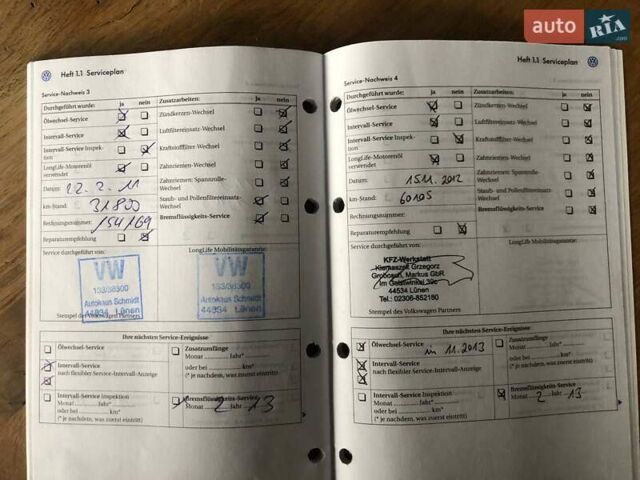 auto RIA .com
Heft 1.1 Serviceplan
Service-Nachweis 3
Durchgeführt wurde: ja nein Zusatzarbeiten: ja nein
Ölwechsel-Service Zündkerzen-Wechsel
Intervall-Service Luftfiltereinsatz-Wechsel
Intervall-Service Inspektion Kraftstofffilter-Wechsel
LongLife-Motorenöl Zahnriemen-Wechsel
verwendet Zahnriemen: Spannrolle-
Wechsel
Datum: 22.2.11
Staub- und Pollenfiltereinsatz-
km-Stand: 31800 Wechsel
Rechnungsnummer: Bremsflüssigkeits-Service
Reparaturempfehlung
Service durchgeführt von: LongLife Mobilitätsgarantie:
VW VW
133/38300 133/38300
Autohaus Schmidt Autohaus Schmidt
44534 Lünen 44534 Lünen
Stempel des Volkswagen Partners
Ihre nächsten Service-Ereignisse
Ölwechsel-Service Zusatzumfänge
Monat Jahr*
Intervall-Service oder bei km*
nach flexibler Service-Intervall-Anzeige (* je nachdem, was zuerst eintritt)
Intervall-Service Inspektion Bremsflüssigkeits-Service
Monat Jahr* Monat 2 Jahr 13
oder bei km*
(* je nachdem, was zuerst eintritt)
Heft 1.1 Serviceplan
Service-Nachweis 4
Durchgeführt wurde: ja nein Zusatzarbeiten: ja nein
Ölwechsel-Service Zündkerzen-Wechsel
Intervall-Service Luftfiltereinsatz-Wechsel
Intervall-Service Inspektion Kraftstofffilter-Wechsel
LongLife-Motorenöl Zahnriemen-Wechsel
verwendet Zahnriemen: Spannrolle-
Wechsel
Datum: 15.11.2012
Staub- und Pollenfiltereinsatz-
km-Stand: 60105 Wechsel
Rechnungsnummer: Bremsflüssigkeits-Service
Reparaturempfehlung
Service durchgeführt von: LongLife Mobilitätsgarantie:
KFZ-Werkstatt
Grzegorz
Markus GbR
44534 Lünen
Tel.: 02306-852180
Stempel des Volkswagen Partners
Ihre nächsten Service-Ereignisse
Ölwechsel-Service in 11.2013 Zusatzumfänge
Monat Jahr*
Intervall-Service oder bei km*
nach flexibler Service-Intervall-Anzeige (* je nachdem, was zuerst eintritt)
Intervall-Service Inspektion Bremsflüssigkeits-Service
Monat Jahr* Monat 2 Jahr 13
oder bei km*
(* je nachdem, was zuerst eintritt)